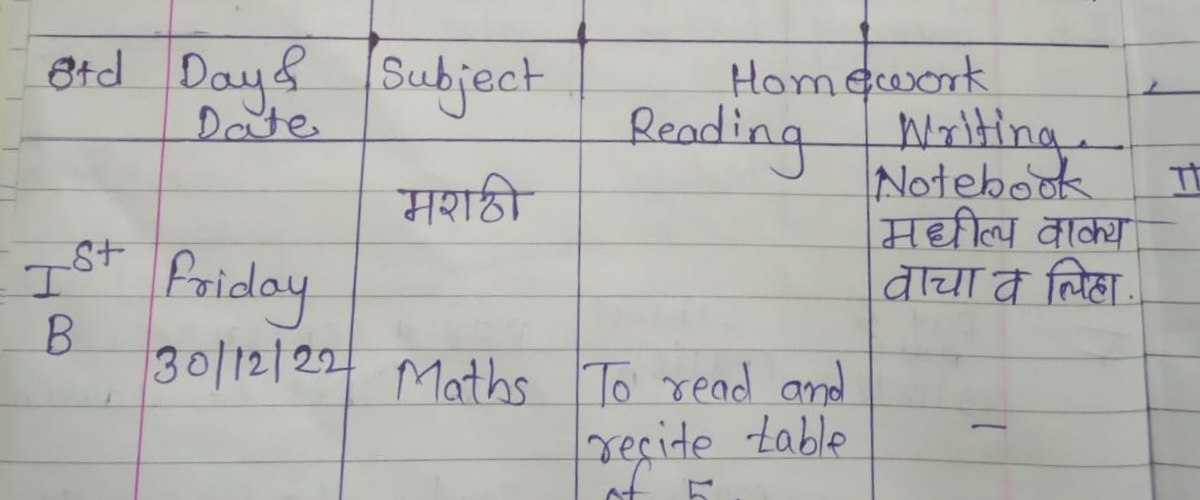 Std Day & Subject Homework
Date Reading Writing.
मराठी Notebook
मधील वाक्य
वाचा व लिहा.
Ist Friday
B
30/12/22 Maths To read and
recite table –
of 5.
II